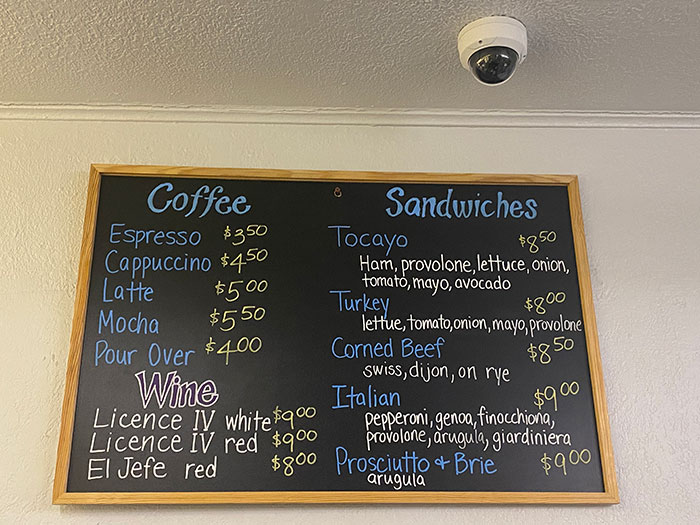 Coffee
Espresso $3.50
Cappuccino $4.50
Latte $5.00
Mocha $5.50
Pour Over $4.00
Wine
Licence IV white $9.00
Licence IV red $9.00
El Jefe red $8.00
Sandwiches
Tocayo $8.50
Ham, provolone, lettuce, onion,
tomato, mayo, avocado
Turkey $8.00
lettue, tomato, onion, mayo, provolone
Corned Beef $8.50
swiss, dijon, on rye
Italian $9.00
pepperoni, genoa, finocchiona,
provolone, arugula, giardiniera
Prosciutto + Brie $9.00
arugula